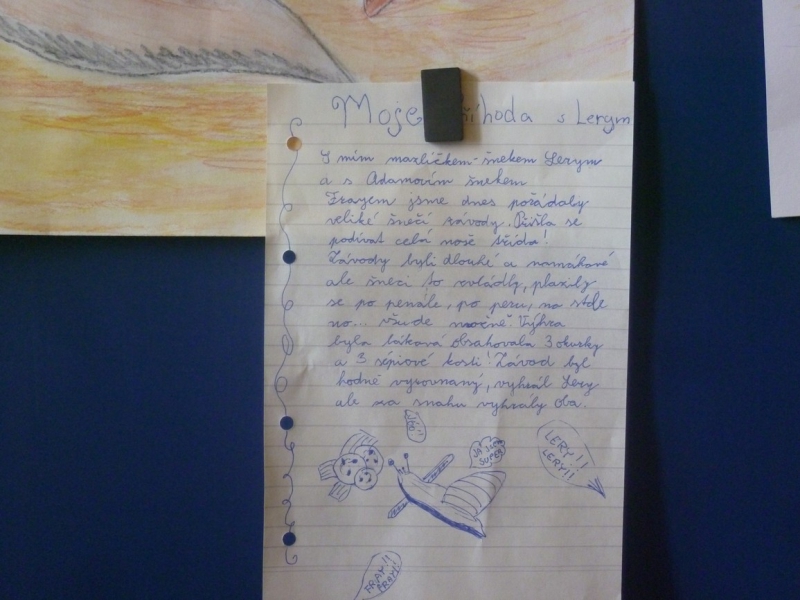 Moje říhoda s Lerym
S mím mazlíčkem-šnekem Lerym
a s Adamovím šnekem
Frayem jsme dnes pořádaly
veliké šnečí závody. Přišla se
podívat celá naše třída!
Závody byli dlouhé a namáhavé
ale šneci to zvládly, plazily
se po penále, po peru, na stole
no... všude možně! Výhra
byla lákavá obsahovala 3 okurky
a 3 sépiové kosti! Závod byl
hodně vyrovnaný, vyhrál Lery
ale za snahu vyhrály oba.
JÁ JSEM
SUPER!
LERY!!
LERY!!
FRAY!!
FRAY!